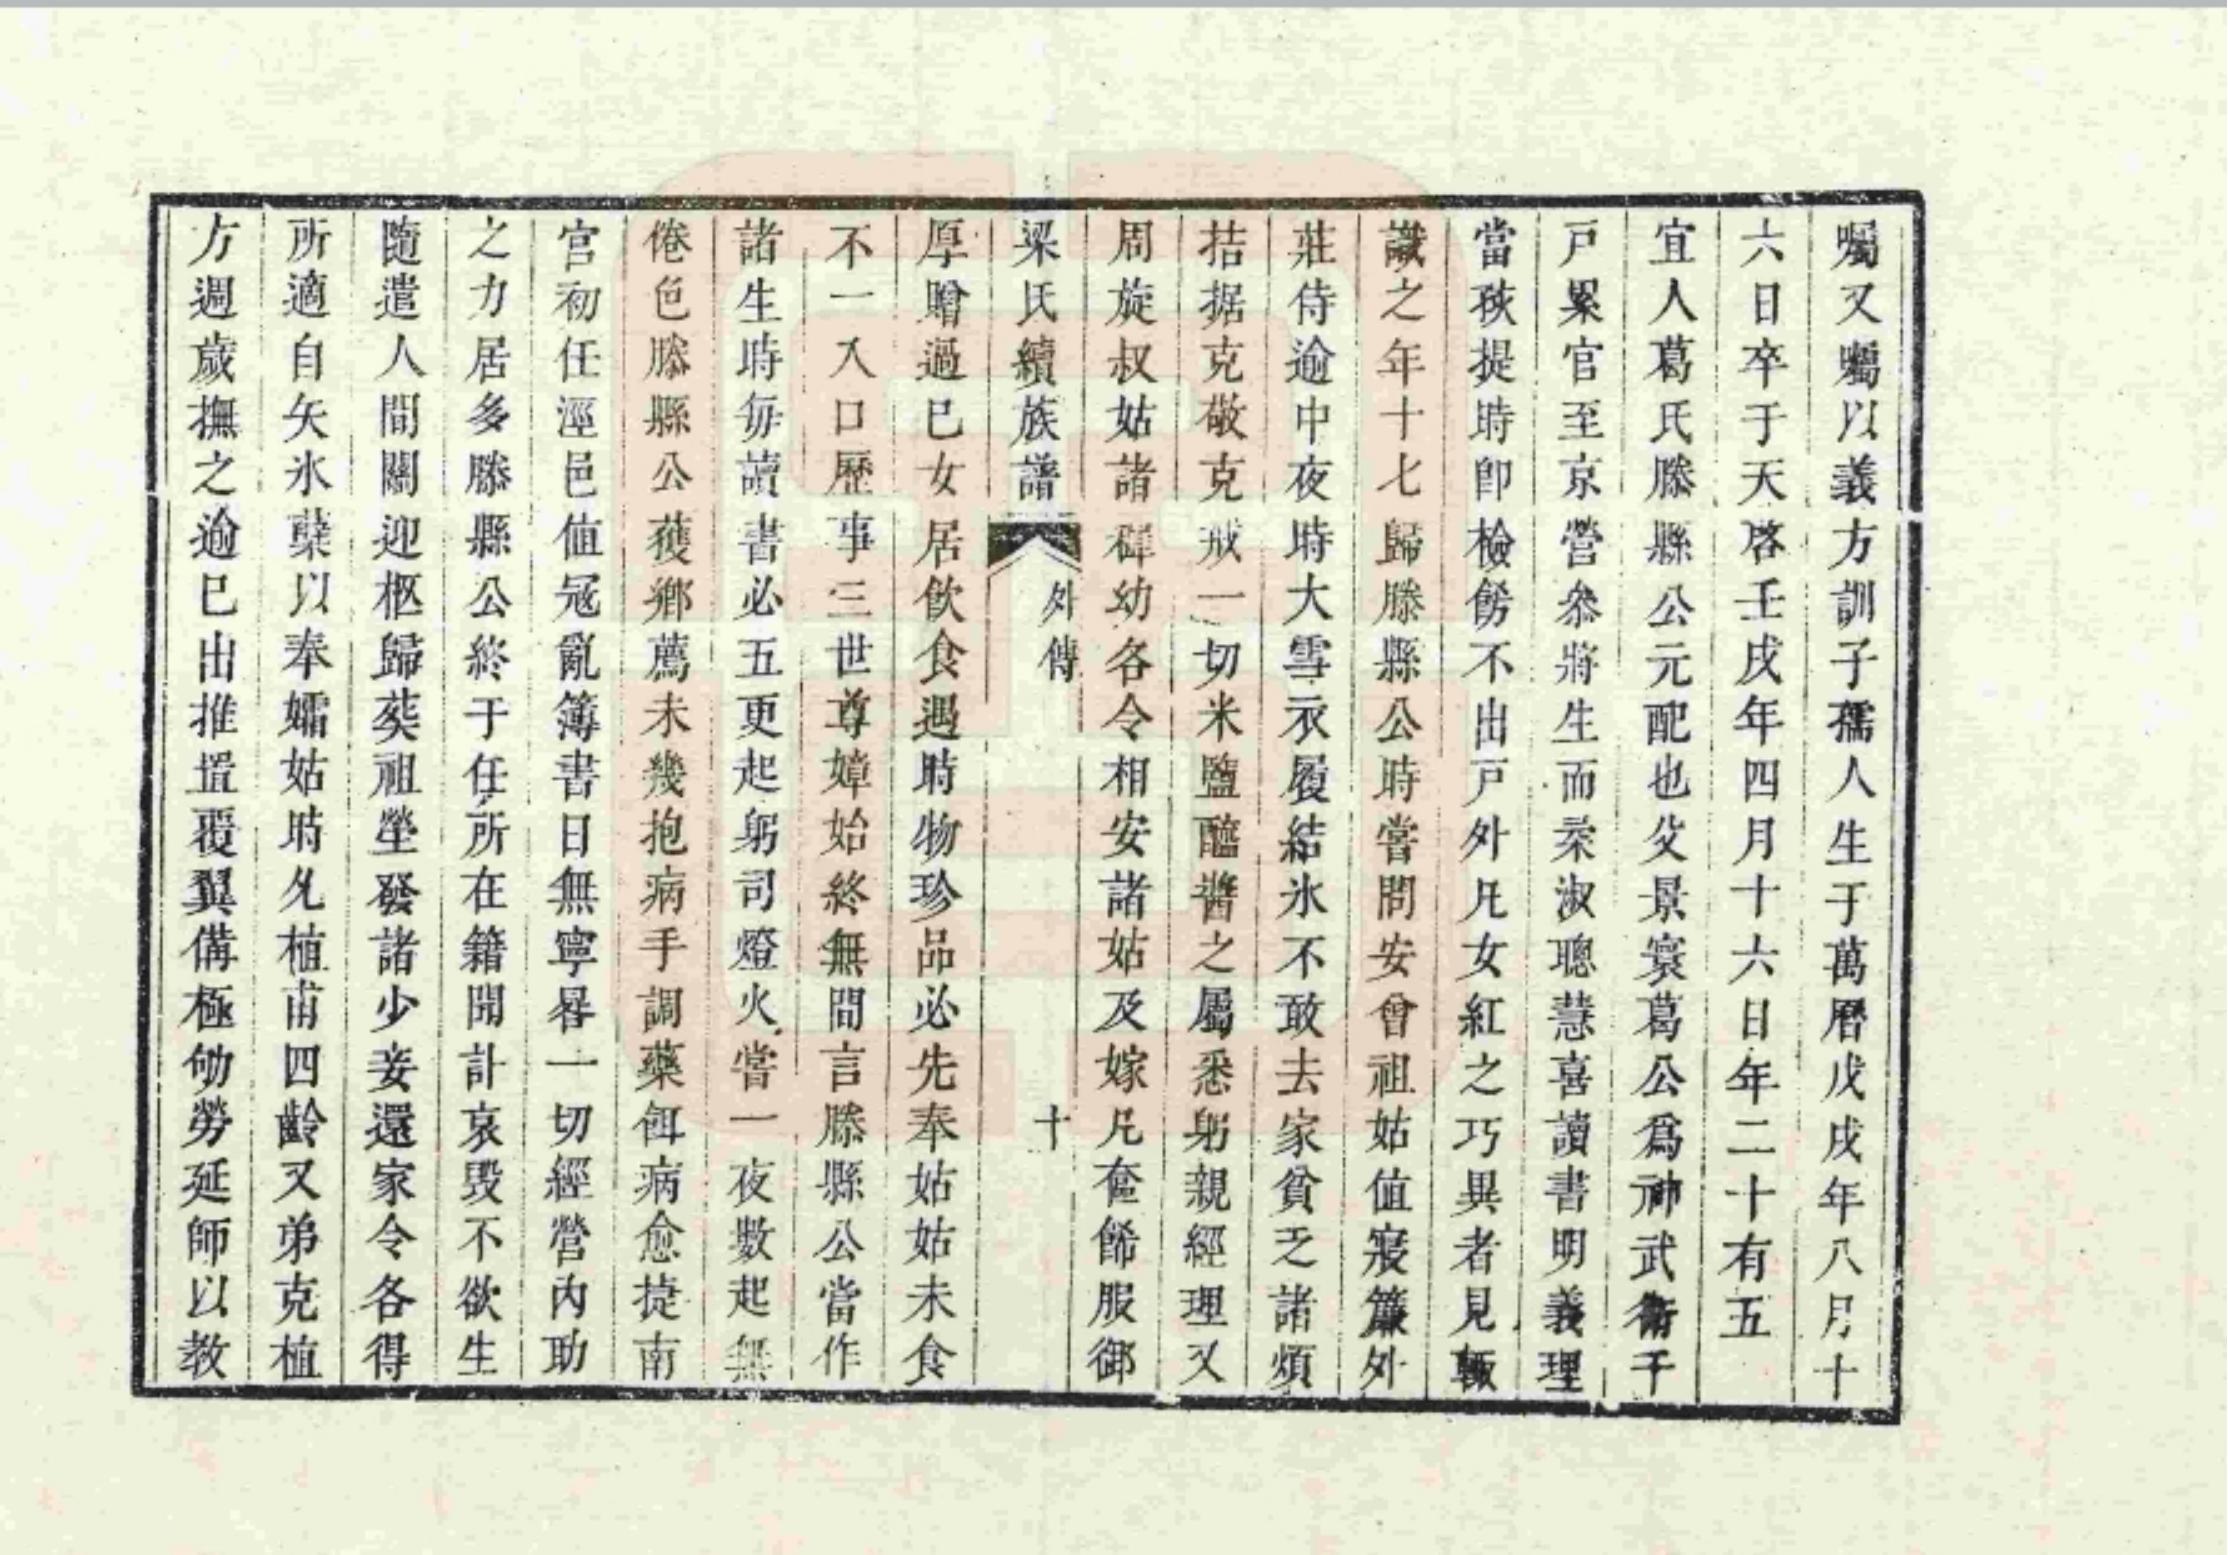 囑又囑以義方訓子孺人生于萬曆戊戌年八月十
六日卒于天啓壬戌年四月十六日年二十有五
宜人葛氏滕縣公元配也父景寰葛公爲神武衛千
戸累官至京營叅將生而柔淑聰慧喜讀書明義理
當孩提時卽檢飭不出戸外凡女紅之巧異者見輒
識之年十七歸滕縣公時嘗問安曾祖姑值寢簾外
莊侍逾中夜時大雪衣履結氷不敢去家貧乏諸煩
拮据克敬克戒一切米鹽醯醬之屬悉躬親經理又
周旋叔姑諸穉幼各令相安諸姑及嫁凡奩餙服御
梁氏續族譜 外傳 十
厚贈過已女居飲食遇時物珍品必先奉姑姑未食
不一入口歷事三世尊嫜始終無間言滕縣公當作
諸生時毎讀書必五更起躬司燈火嘗一夜數起無
倦色滕縣公獲鄉薦未幾抱病手調藥餌病愈捷南
宫初任涇邑值冦亂簿書日無寧晷一切經營内助
之力居多滕縣公終于任所在籍聞訃哀毁不欲生
隨遣人間關迎柩歸葬祖塋發諸少妾還家令各得
所適自矢氷蘗以奉孀姑時允植甫四齡又弟克植
方週歲撫之逾已出推置覆翼備極劬勞延師以教